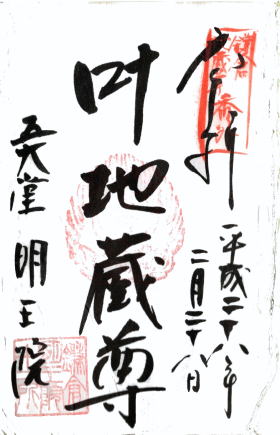 奉拝
平成二十八年
二月二十八日
叶地蔵尊
五大堂 明王院